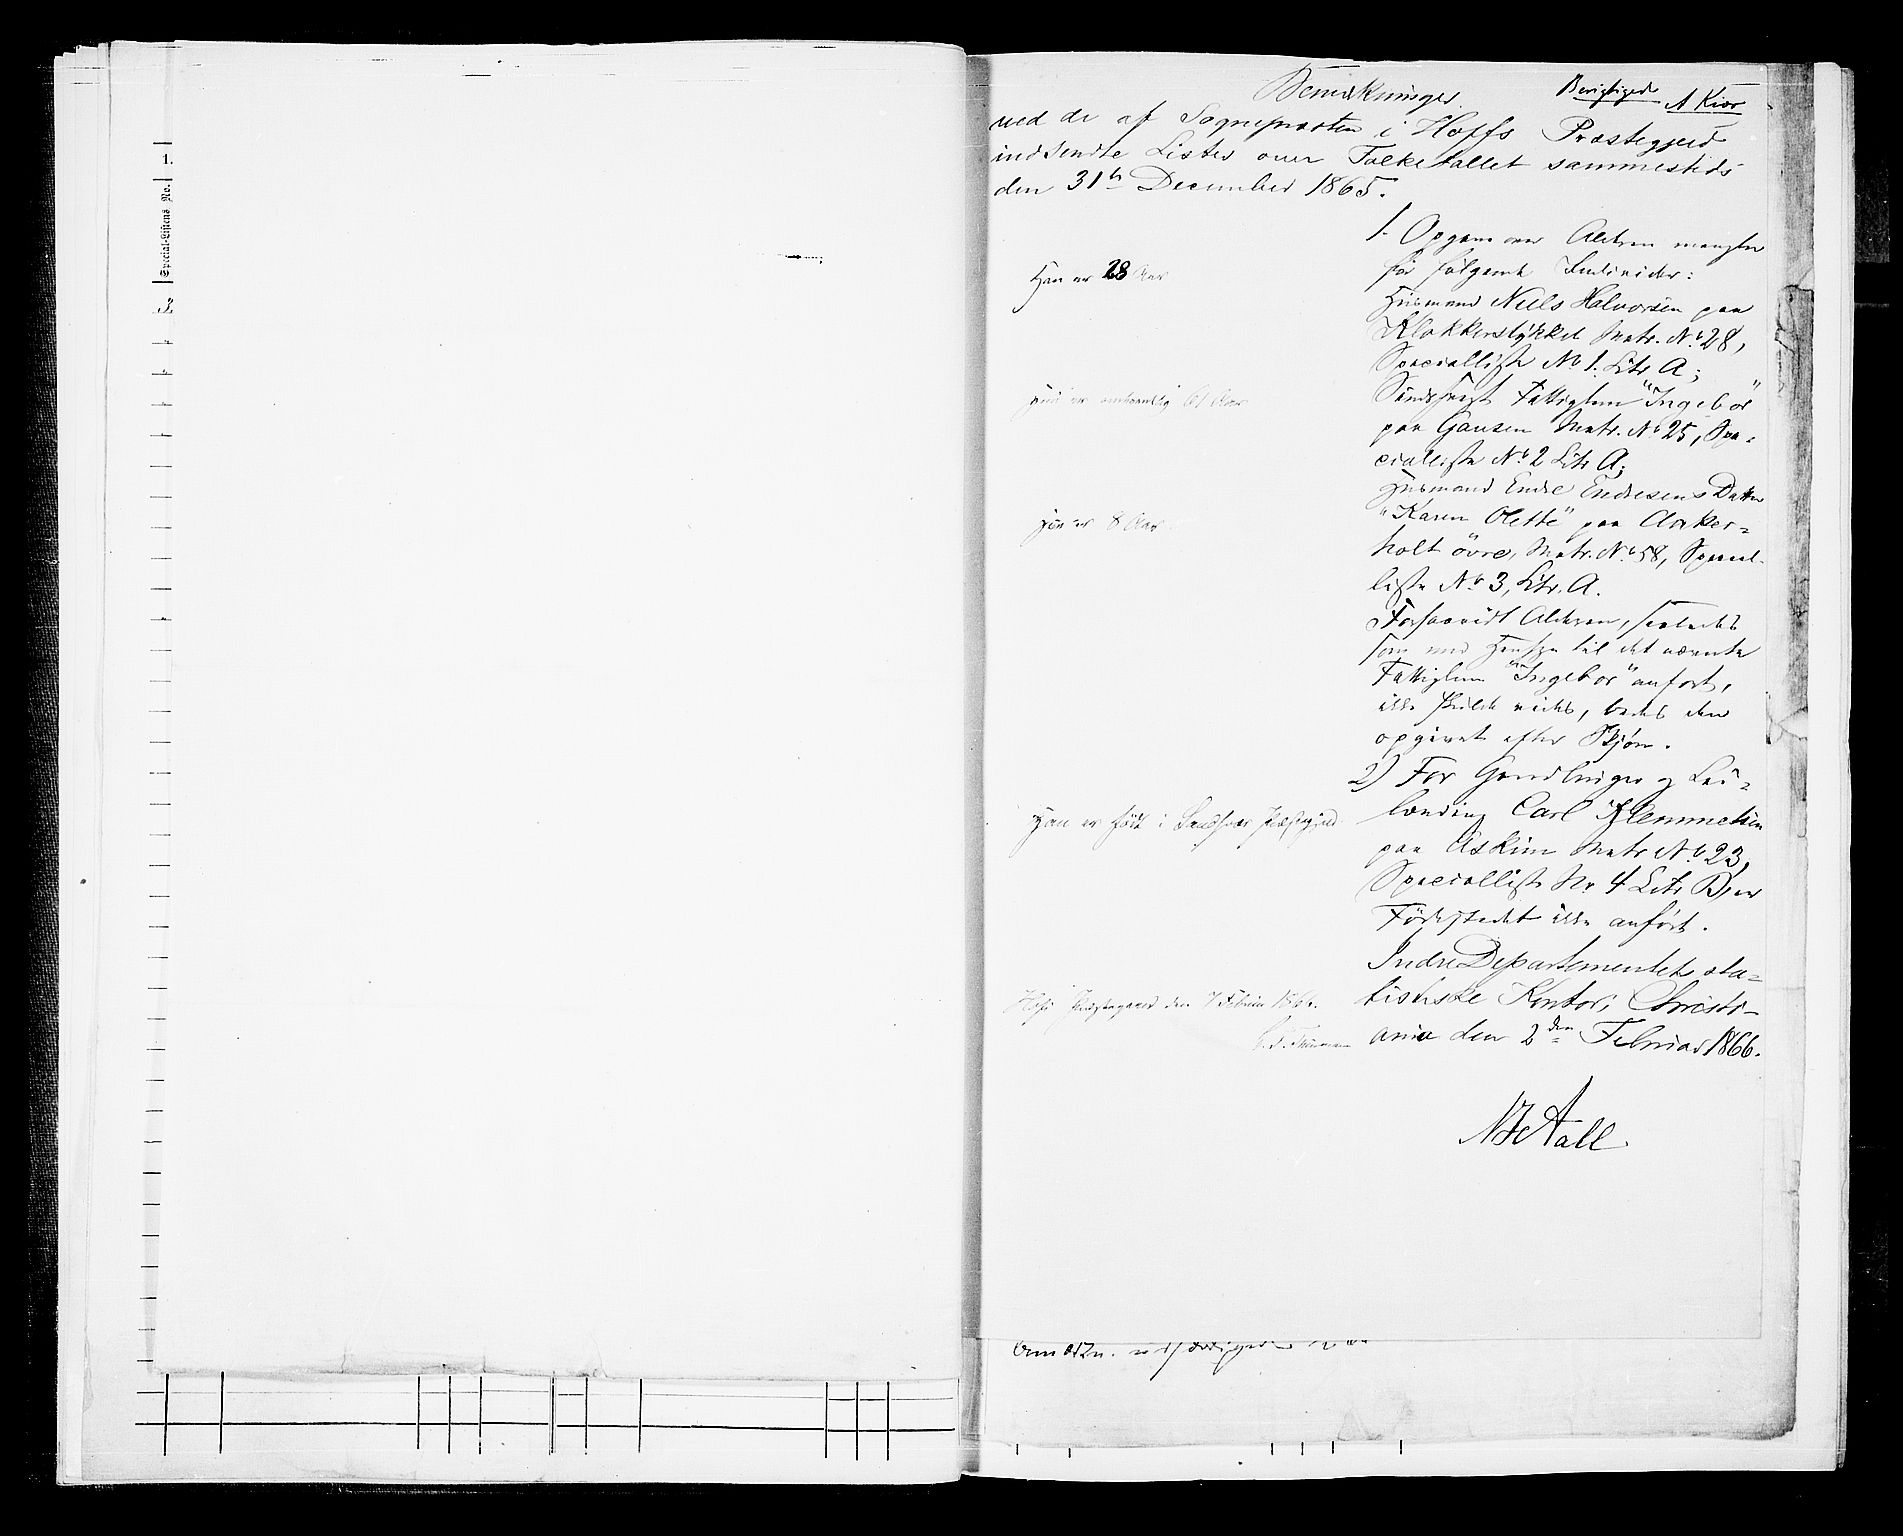 1.
Special-Listens No.
Bemærkninger.
Berigtiget
A Kiær
ved de af Sognepræsten i Hoffs Præstegjeld
indsendte Lister over Folketallet sammesteds
den 31te December 1865.
1. Opgave over Alderen mangler
for følgende Individer:
Han er 28 Aar
Huusmand Niels Halvorsen paa
Klokkerstykket Matr. No. 28,
Specialliste No 1. Litr A;
Hun er omtrentlig 61 Aar
Fattiglem "Ingebor"
paa Gausen Matr. No 25, Spe-
cialliste No. 2 Litr A;
Huusmand Endre Endresens Datter
Hun er 8 Aar
"Karen Olette" paa Aaker-
holt övre, Matr. No 58, Special-
liste No. 3, Litr. A.
Forsaavidt Alderen,
som med Hensyn til det nævnte
Fattiglem "Ingebor" anført,
ikke skulde vides, bedes den
opgivet efter Skjøn.
2) For Gaardbruger og Lei-
Han er født i Sandsvær Præstegjeld.
lænding Carl Klemmetsen
paa Askim Matr No. 23,
Specialliste No. 4 Litr B, er
Fødestedet ikke anført.
Indre Departementets sta-
Hofs Præstegaard den 7 Februar 1866.
tistiske Kontor, Christi-
ania den 2den Februar 1866.